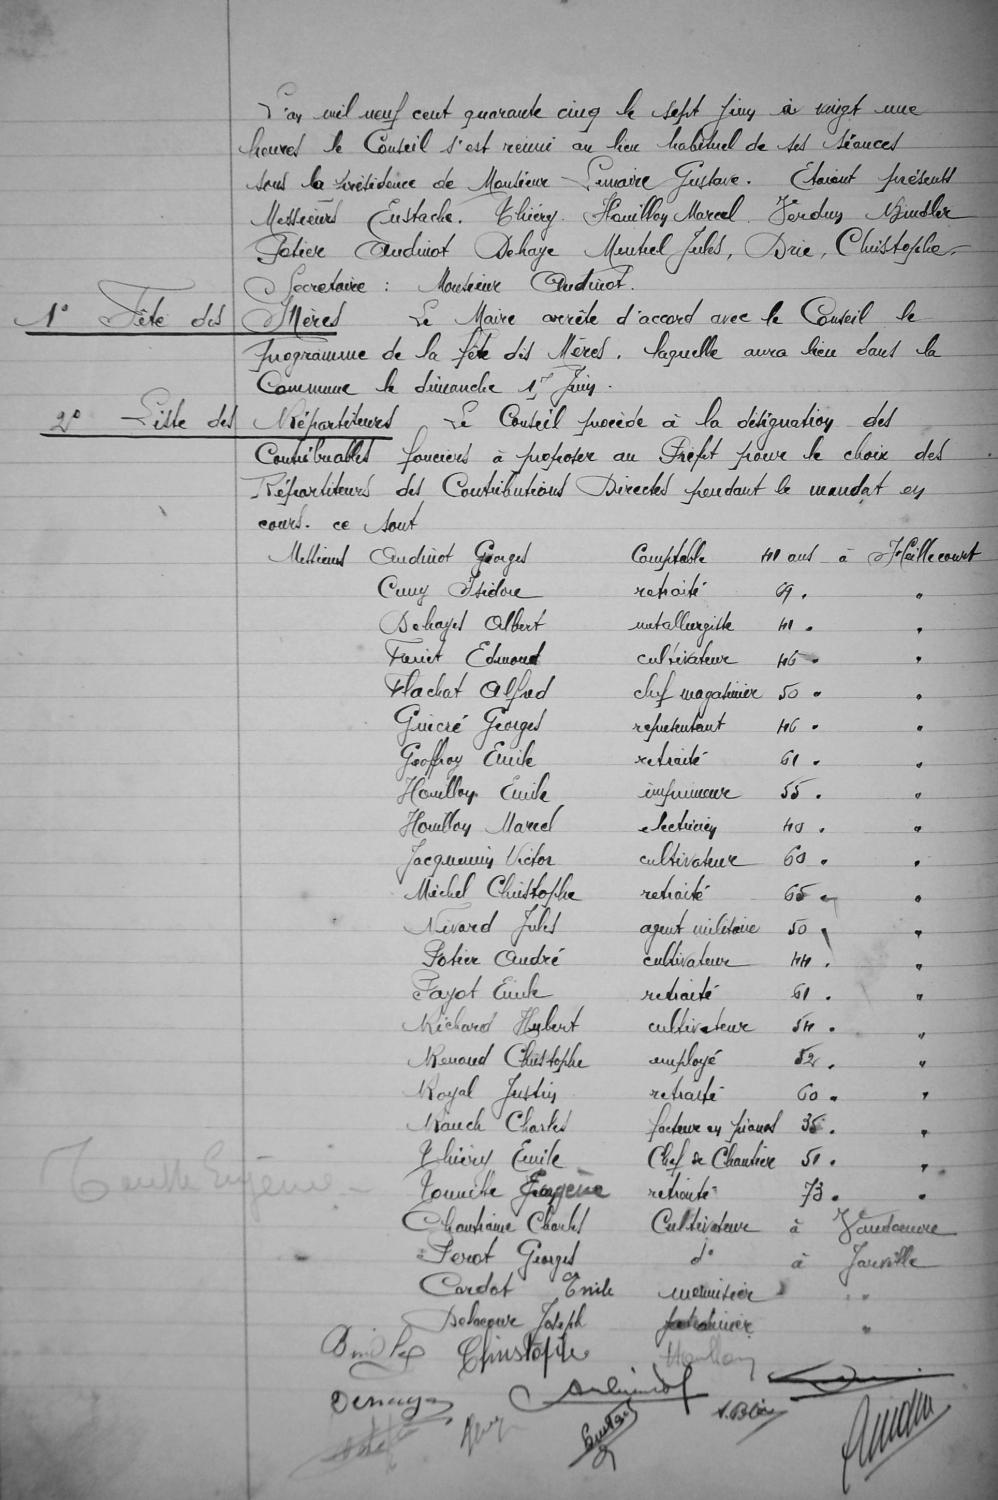 L'an mil neuf cent quarante cinq le sept Juin à vingt une
heures le Conseil s'est reuni au lieu habituel de ses séances
sous la présidence de Monsieur Lemaire Gustave. Etaient présents
Messieurs Eustache. Thiéry. Houillon Marcel Verdun Bindler
Potier Audinot Dehaye Michel Jules, Brie, Christophe.
Secretaire : Monsieur Audinot.
1° Fête des Mères Le Maire arrête d'accord avec le Conseil le
programme de la fête des Mères. laquelle aura lieu dans la
Commune le dimanche 17 Juin.
2° Liste des Répartiteurs Le Conseil procède à la désignation des
Contribuables fonciers à proposer au Préfet pour le choix des
Répartiteurs des Contributions Directes pendant le mandat en
cours. ce sont
Messieurs Audinot Georges Comptable 41 ans à Heillecourt
Cuny Isidore retraité 69 . "
Dehayes Albert metallurgiste 41 . "
Feriet Edmond cultivateur 46 . "
Flachat Alfred chef magasinier 50 " "
Georges représentant 46 . "
Geoffroy Emile retraité 61 . "
Houillon Emile imprimeur 55 . "
Houillon Marcel electricien 40 . "
Jacquemin Victor cultivateur 60 . "
Michel Christophe retraité 65 "
Nivard Jules agent militaire 50 "
Potier André cultivateur 44 . "
Payot Emile retraité 61 . "
Richard Hubert cultivateur 54 . "
Renaud Christophe employé 52 . "
Royal Justin retraité 60 . "
Rauch Charles facteur en pianos 35 . "
Thiéry Emile Chef de Chantier 51 . "
Tonnelle Eugène retraité 73 . "
Charles Cultivateur à Vandoeuvre
Perot Georges d° à Jarville
Cardot Emile menuisier " "
Delacour Joseph "
Christophe Houillon